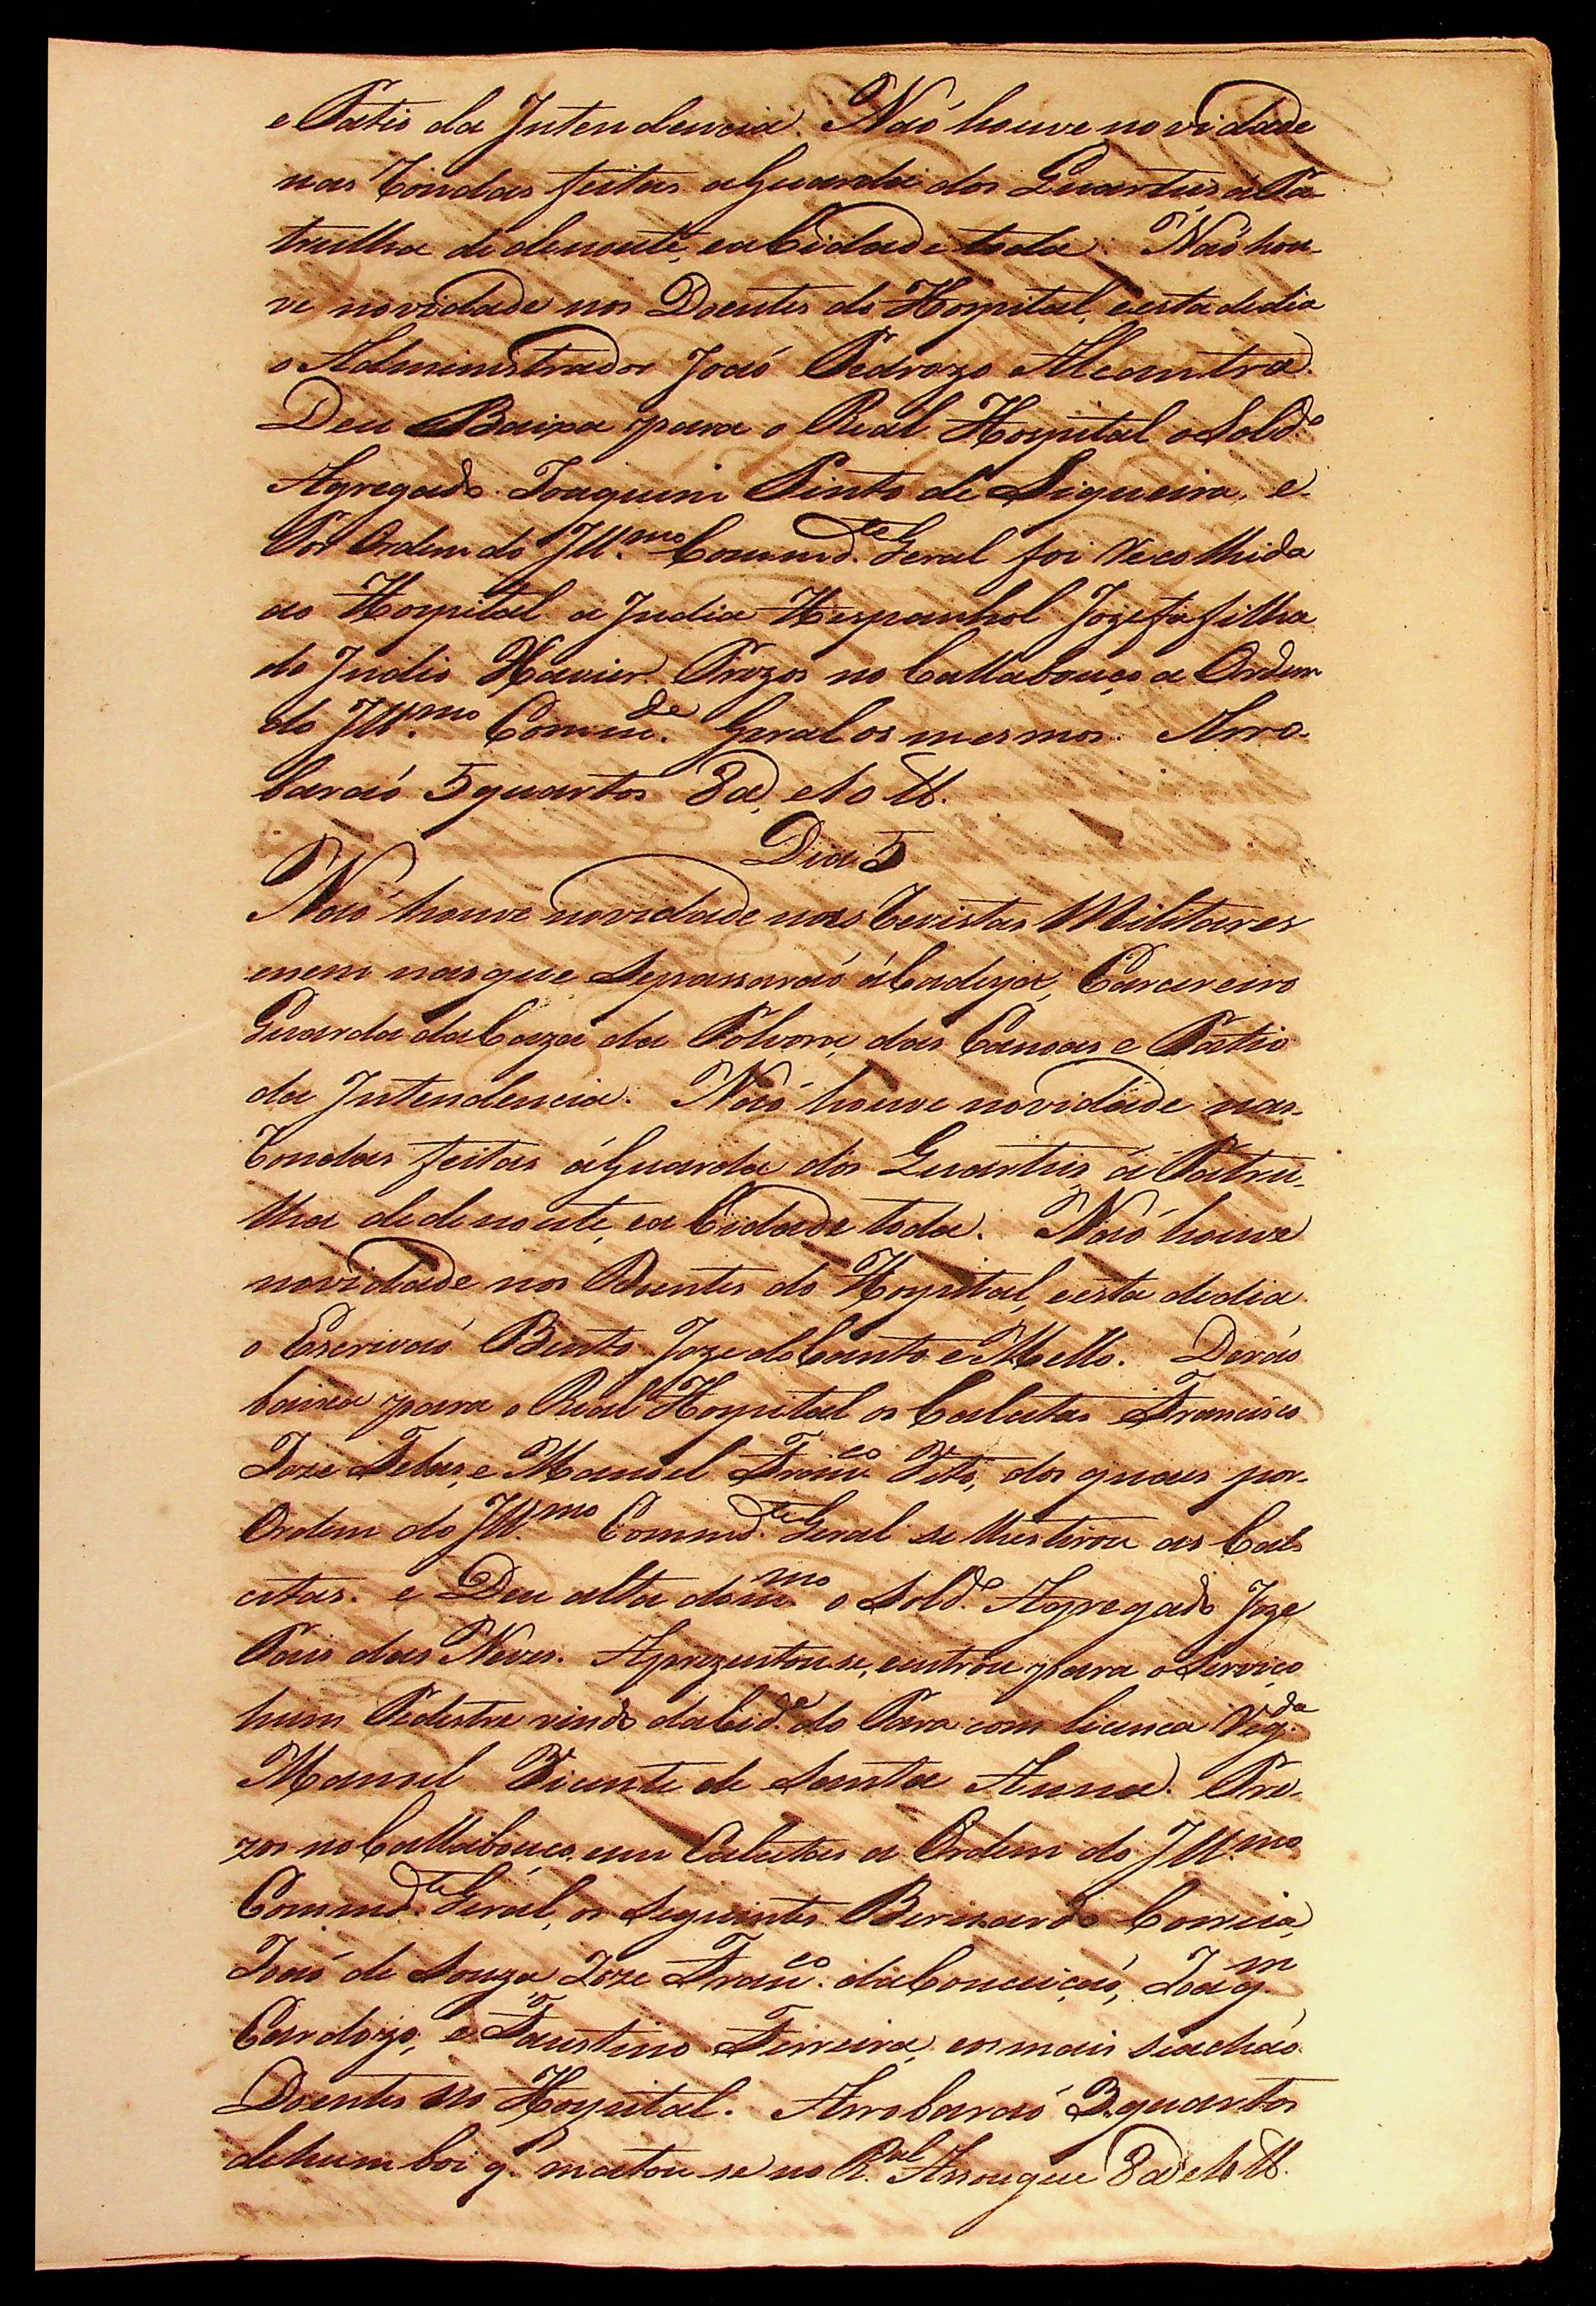 e Patio da Intendencia. Naó houve novidade
nas Rondas feitas a Guarda dos Quarteis, á Pa-
trulha de denoute, ea Cidade toda. Naó hou-
ve novidade nos Doentes do Hospital, eesta dedia
o Administrador Joaó Pedrozo Alcantra.
Deu Baixa para o Real Hospital o Sold.º
Agregado Joaquim Pinto de Siqueira, e
Por Ordem do Ill.mo Command.te Geral foi Recolhida
ao Hospital a India Hespanhol Jozefa filha
do Indio Xavier. Prezos no Callabouço a Ordem
do Ill.mo Comm.de Geral os mesmos. Arro-
baraó 5 quartos 8@, e10 ℔.
Dia 5
Naó houve novidade nas Revistas Militares
enem nasque Sepassaraó áCadeya, Carcereiro
Guarda daCaza da Polvora, das Canoas e Patio
da Intendencia. Naó houve novidade nas
Rondas feitas áGuarda dos Quarteis, á Patru-
lha dedenoute, ea Cidade toda. Naó houve
novidade nos Doentes do Hospital, eesta dedia
o Escrivaó Bento Joze doCanto e Mello. Deráo
baixa para o Real Hospital os Calcetas Francisco
Joze Telas, e Manoel Fran.co Tito, dos quais por
Ordem do Ill.mo Command.te Geral se lhestirou as Cal-
cetas. e Deu alta dom.mo o Sold.º Agregado Joze
Pais das Neves. Aprezentouse, entrou para oServiço
hum Pedestre vindo daCid.e do Para com licença Reg.da
Manoel Vicente de Santa Anna. Pre-
zos noCallabouço em Calcetas a Ordem do Ill.mo
Command.te Geral, os Seguintes Bernardo Correia,
Joaó de Souza Joze Fran.co daConceiçaó, Joaq.m
Cardozo, e Faustino Ferreira, eosmais seacháo
Doentes no Hospital. Arrobaraó 3 quartos
dehum boi q. matou-se no R.al Assougue 8@ e16 ℔.